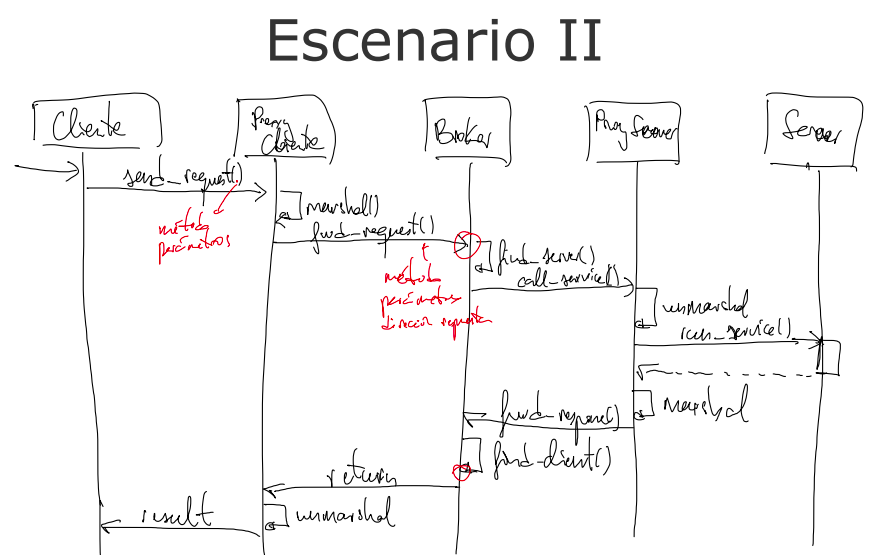 Escenario II
Cliente
Proxy
Cliente
Broker
Proxy Server
Server
send_request()
método
parámetros
marshal()
fwd_request()
método
parámetros
dirección respuesta
find_server()
call_service()
unmarshal
run_service()
marshal
fwd_response()
find_client()
return
unmarshal
result